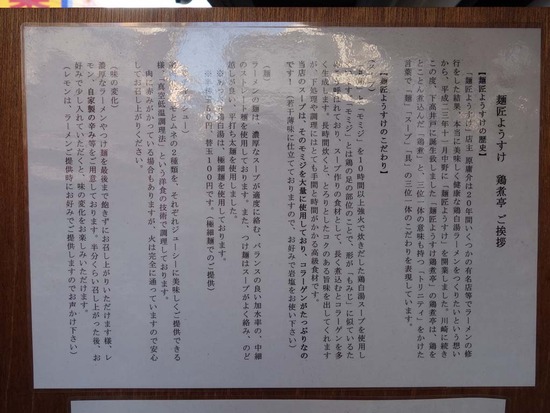 麺匠ようすけ 鶏煮亭 ご挨拶
【麺匠ようすけの歴史】
「麺匠ようすけ」店主 原庸介は20年間いくつかの有名店等でラーメンの修
行をした結果、本当に美味しく健康な鶏白湯ラーメンをつくりたいという想い
から、平成二十三年十一月中野に「麺匠ようすけ」を開業しました。川崎に続き
この度、下高井戸に誕生致しました「麺匠ようすけ鶏煮亭」の鶏煮亭は、鶏を
とことん煮込んだ「鶏煮亭」と、三位一体の意味も持つ「トリニティ」をかけた
言葉で「麺」「スープ」「具」の三位一体のこだわりを表現しています。
【麺匠ようすけのこだわり】
鶏の「モミジ」を10時間以上強火で炊きだした鶏白湯スープを使用し
「モミジ」とは鶏の足の部位のことで、形が「もみじ」に似ているた
めこう呼ばれており、スープをとる食材として、長く煮込むとコラーゲンを多
く生成します。長時間炊くと、とろりとしたコクのある旨味を出してくれます
が、下処理や調理にはとても手間と時間がかかる高級食材です。
当店のスープは、そのモミジを大量に使用しており、コラーゲンがたっぷりなの
です！（若干薄味に仕立ておりますので、お好みで岩塩をお使い下さい）
（麺）
ラーメンの麺は、濃厚なスープが適度に絡む、バランスの良い加水率の、中細
のストレート麺を使用しております。また、つけ麺はスープがよく絡み、のど
越しが良い、平打ち太麺を使用しました。
鶏白湯は、極細麺を使用しております。
替玉100円です。（極細麺でのご提供）
とムネの2種類を、それぞれジューシーに美味しくご提供できる
様、「真空低温調理法」という洋食の技術で調理しております。
肉に赤みがかっている場合もありますが、火は完全に通っていますので安心
してお召し上がりください。
（味の変化）
濃厚なラーメンやつけ麺を最後まで飽きずにお召し上がりいただけます様、レ
モン、自家製の辛み等をご用意しております。半分くらい召し上がった後、お
好みで少し入れていただくと、味の変化をお楽しみいただけます。
（レモンは、ラーメンご提供時にお好みでご提供しますのでお声かけ下さい）